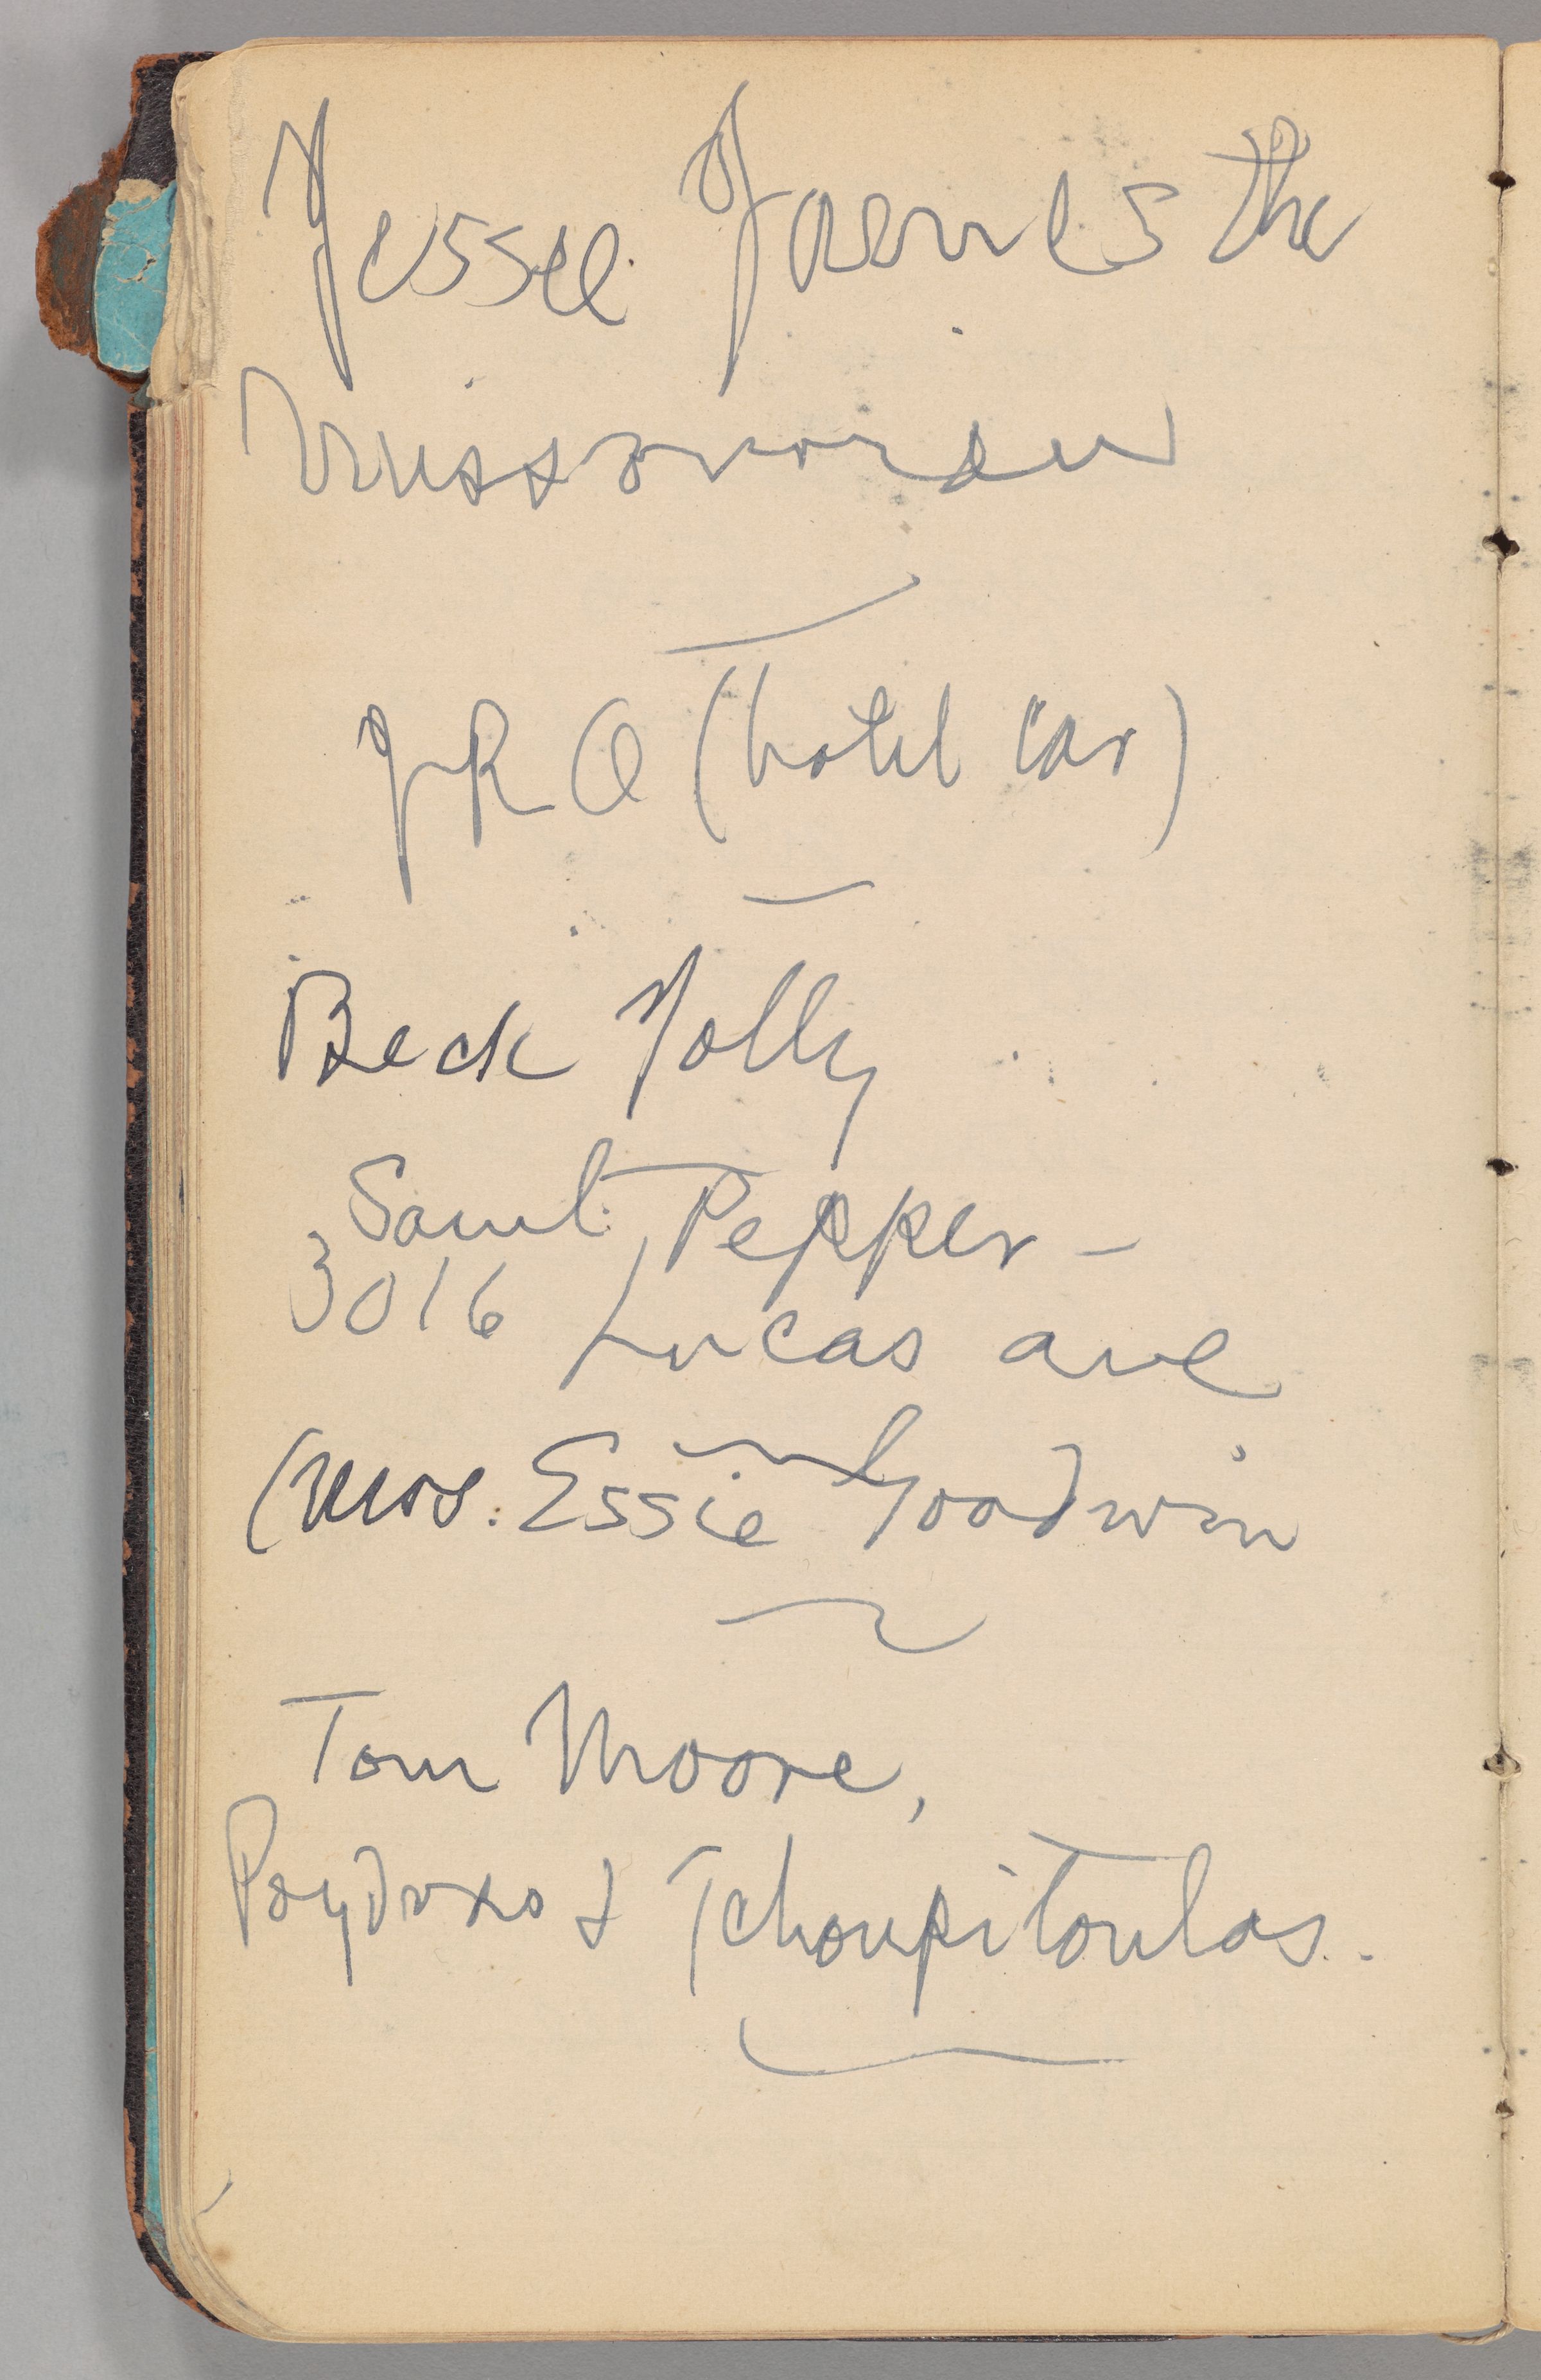 Jesse James the
Missourian
J R O (hotel car)
Beck Jolly
Saml. Pepper –
3016 Lucas ave
(Mrs. Essie Goodwin
Tom Moore,
Poydras & Tchoupitoulas.